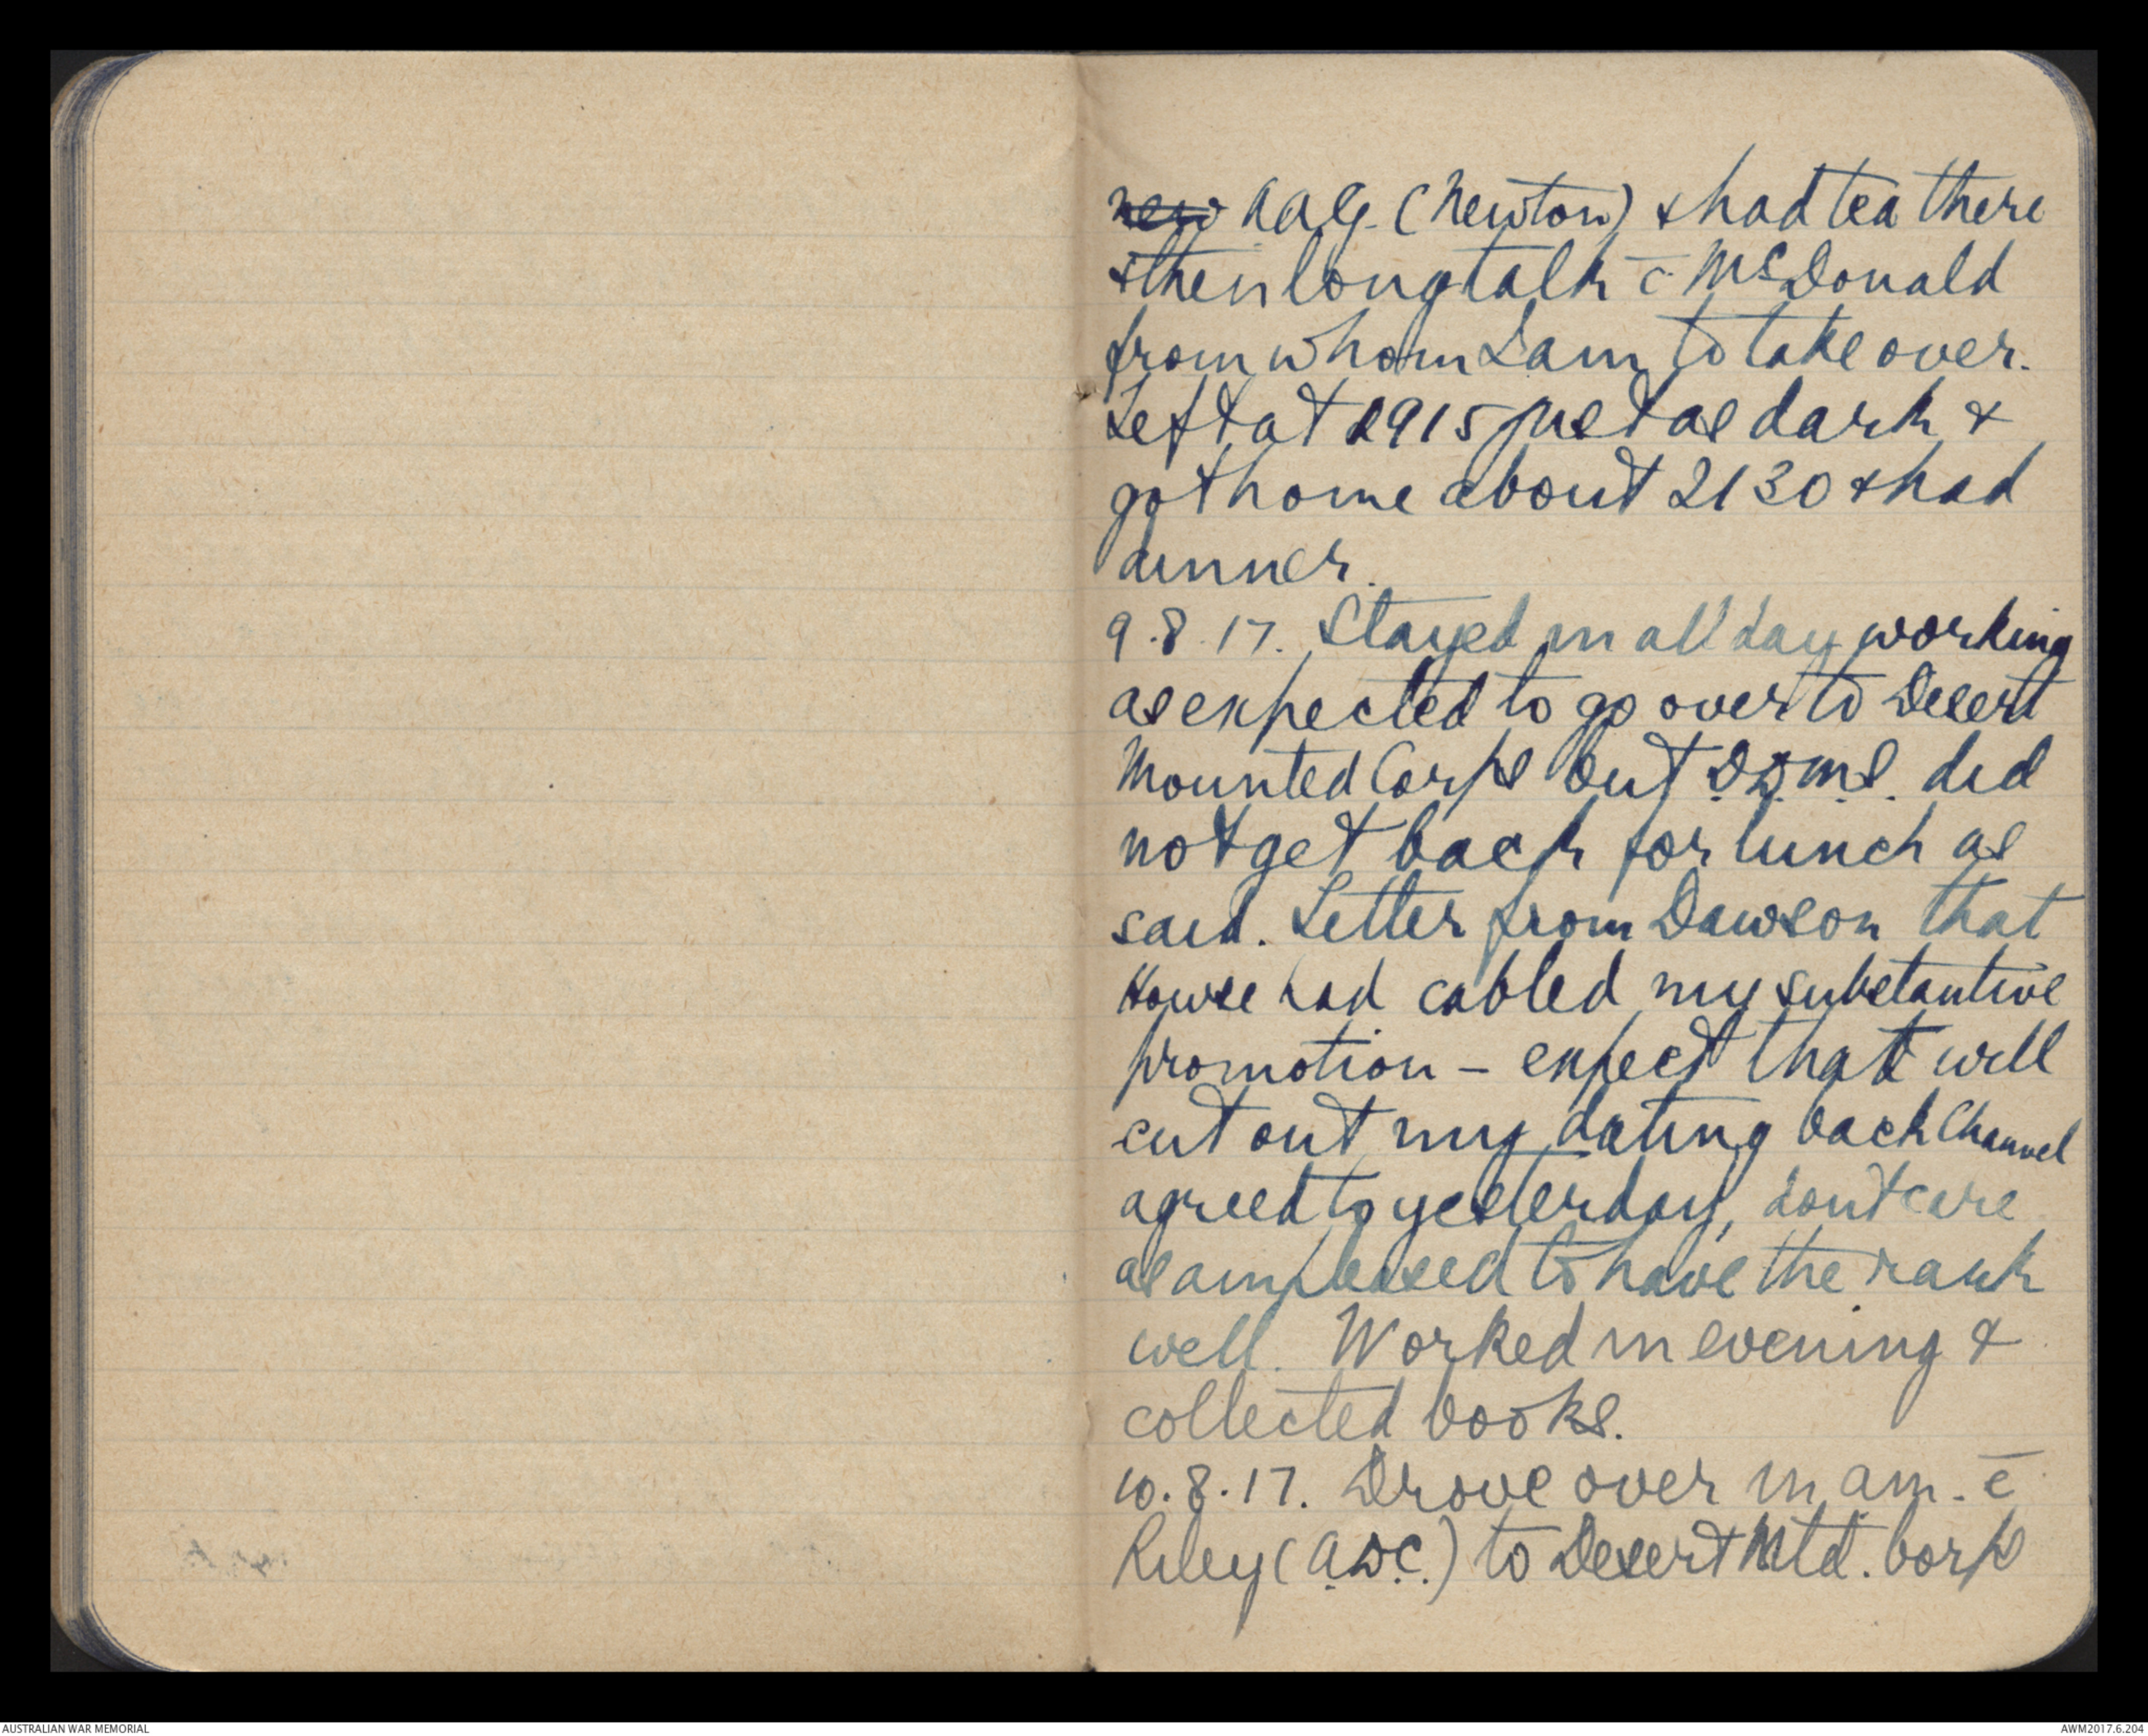 new AAG. (Newton) & had tea there
& then long talk c̄ McDonald
from whom I am to take over.
Left at 1915 just as dark &
got home about 2130 & had
dinner.
9.8.17. Stayed in all day working
as expected to go over to Desert
Mounted Corps but D.D.M.S. did
not get back for lunch as
said. Letter from Dawson that
Howse had cabled my substantive
promotion - expect that will
cut out my dating back Chauvel
agreed to yesterday, dont care
as am pleased to have the rank
well. Worked in evening &
collected books.
10.8.17. Drove over in am. c̄
Riley (A.D.C.) to Desert Mtd. Corps
AUSTRALIAN WAR MEMORIAL
AWM2017.6.204